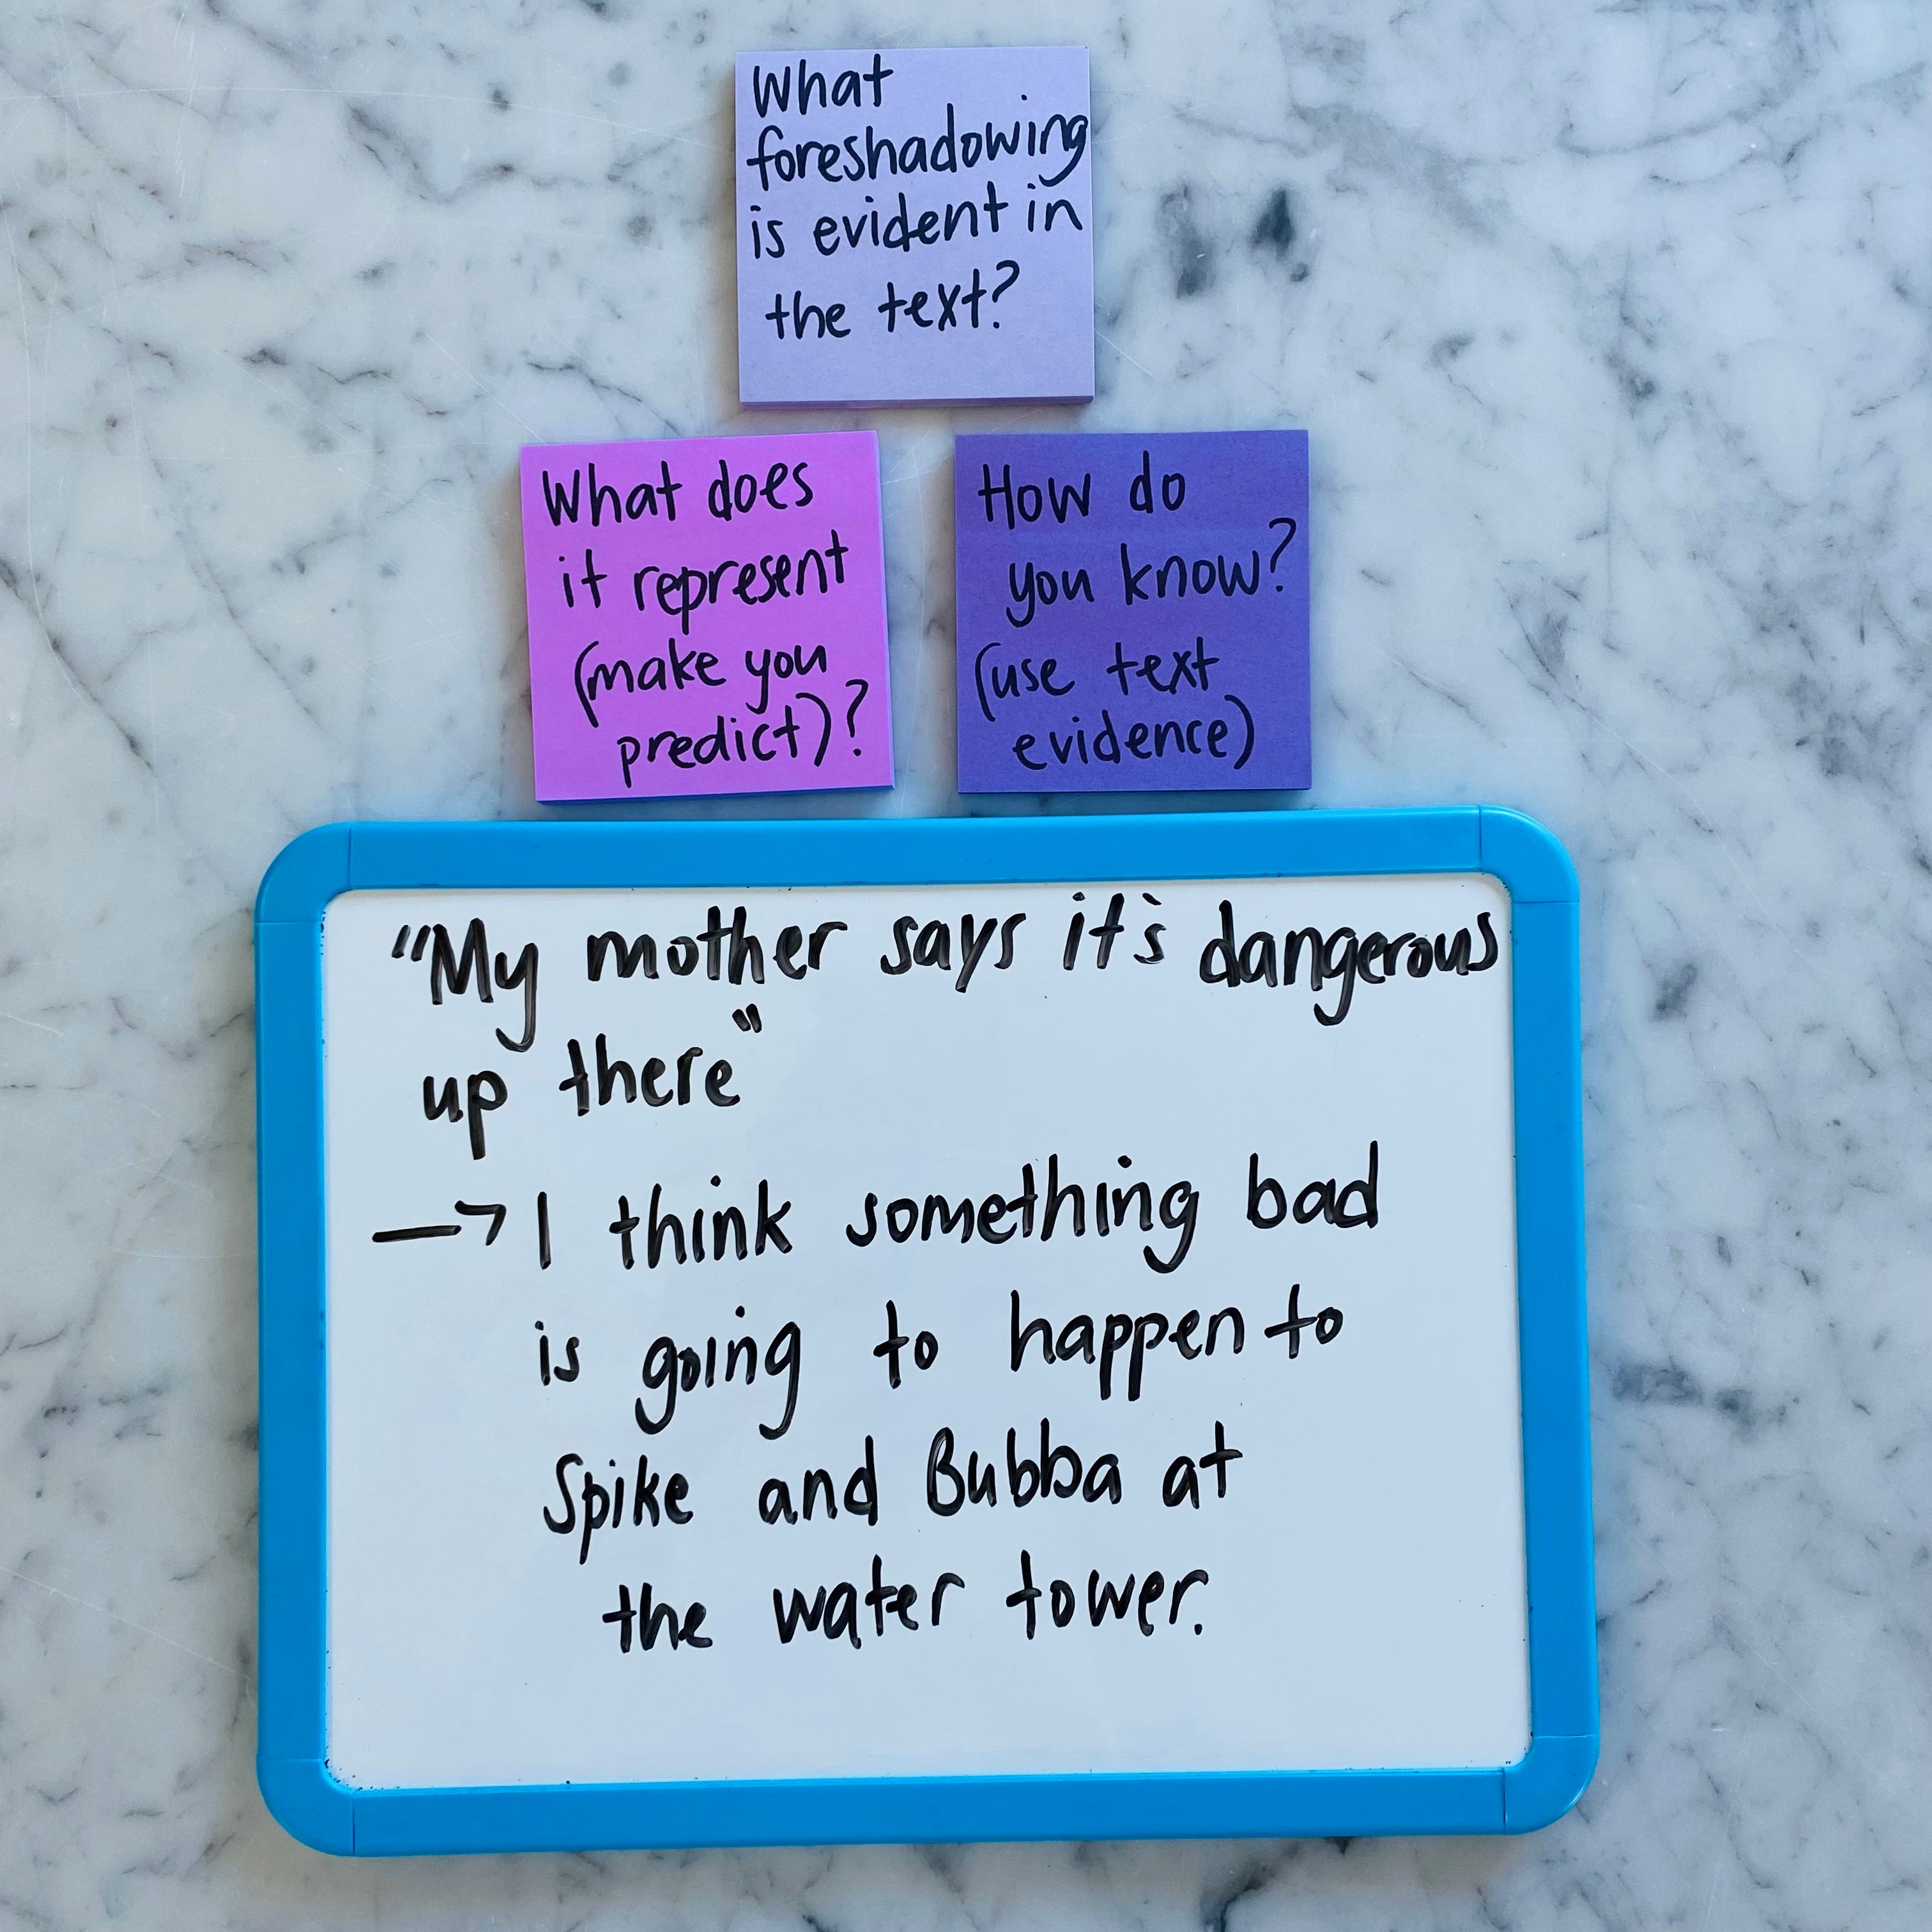 What
foreshadowing
is evident in
the text?
What does
it represent
(make you
predict)?
How do
you know?
(use text
evidence)
"My mother says it's dangerous
up there"
→ I think something bad
is going to happen to
Spike and Bubba at
the water tower.